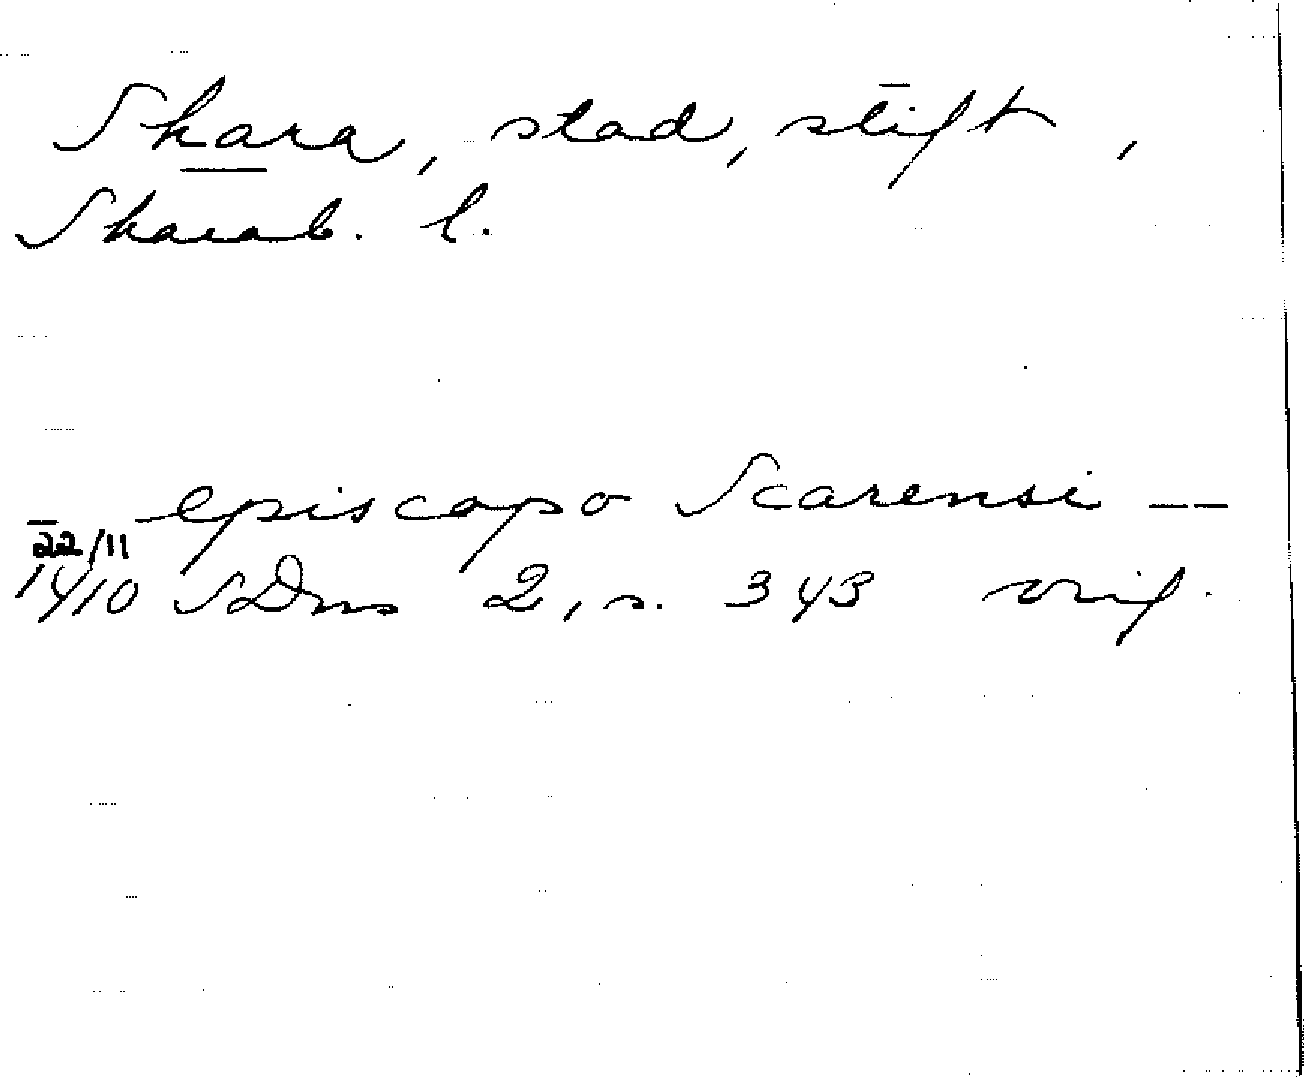 Skara, stad, stift,
Skarab. l.
episcopo Scarensi —
22/11
14/10 SDns 2, s. 343 orig.